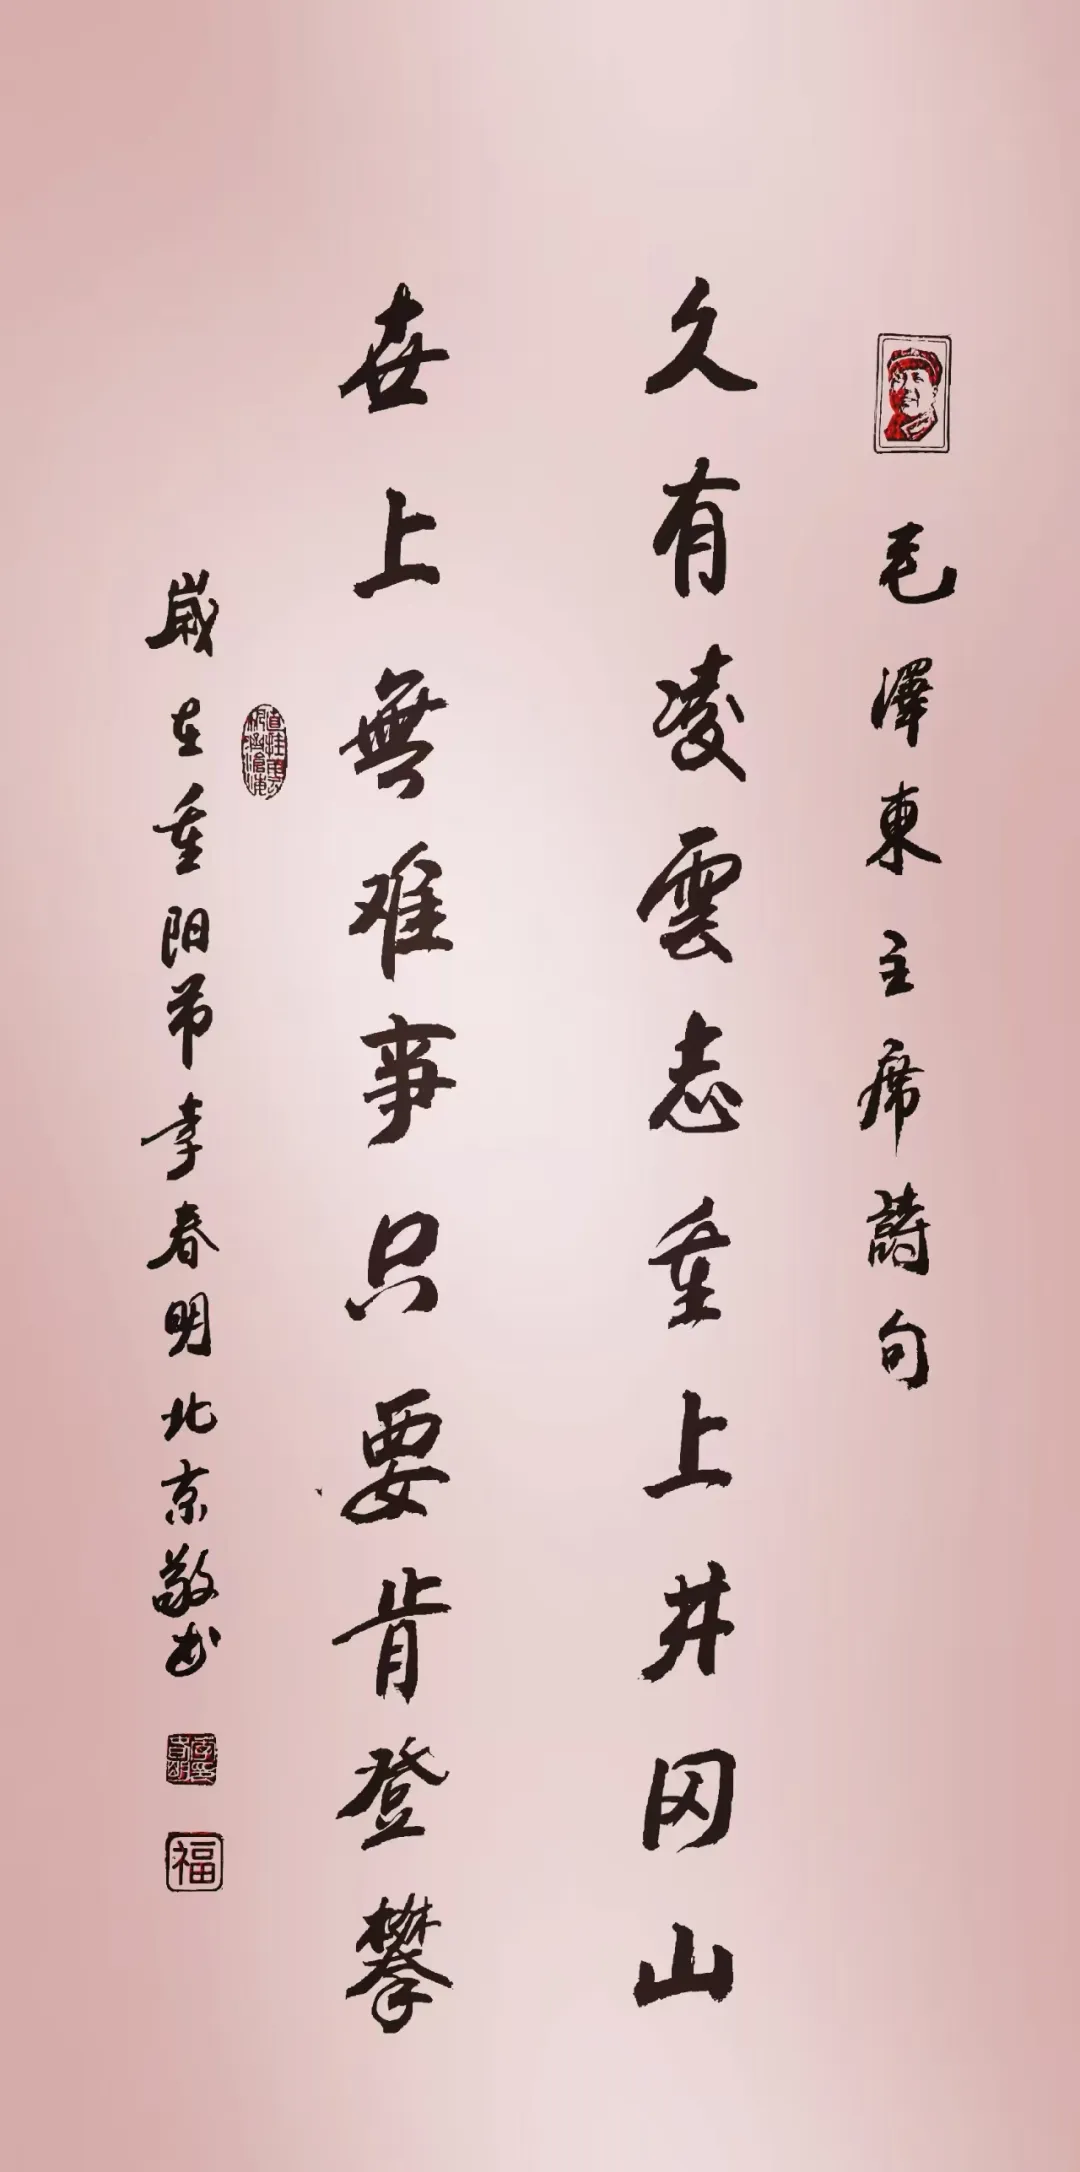 毛澤東主席詩句
久有凌雲志重上井冈山
世上無难事只要肯登攀
歲在重阳节李春明北京敬书
福